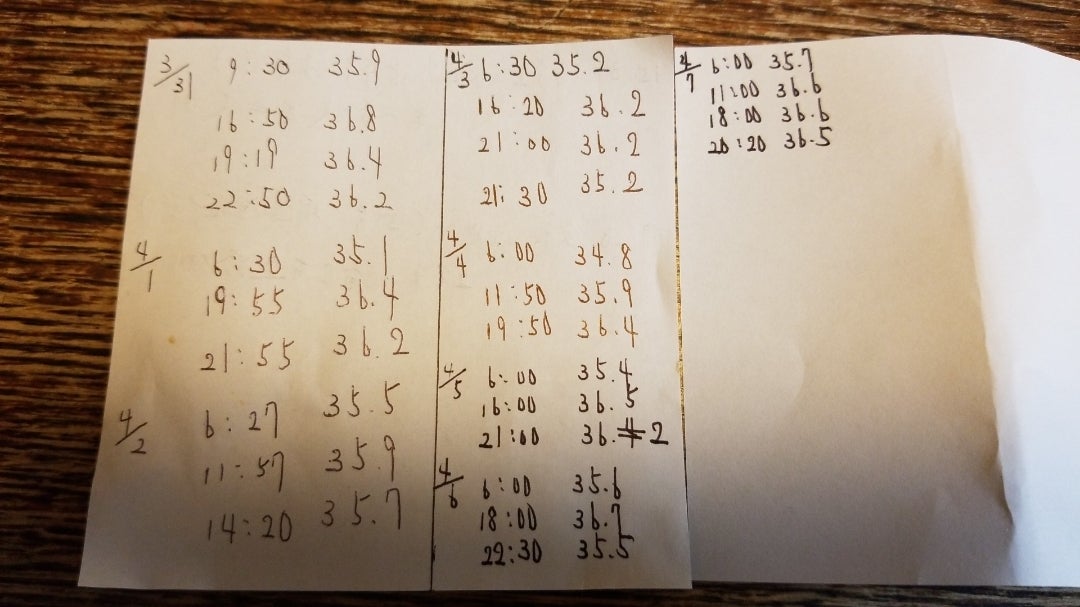 3/31 9:30 35.9
16:50 36.8
19:19 36.4
22:50 36.2
4/1 6:30 35.1
19:55 36.4
21:55 36.2
4/2 6:27 35.5
11:57 35.9
14:20 35.7
4/3 6:30 35.2
16:20 36.2
21:00 36.2
21:30 35.2
4/4 6:00 34.8
11:50 35.9
19:50 36.4
4/5 6:00 35.4
16:00 36.5
21:00 36.2
4/6 6:00 35.6
18:00 36.7
22:30 35.5
4/7 6:00 35.7
11:00 36.6
18:00 36.6
20:20 36.5